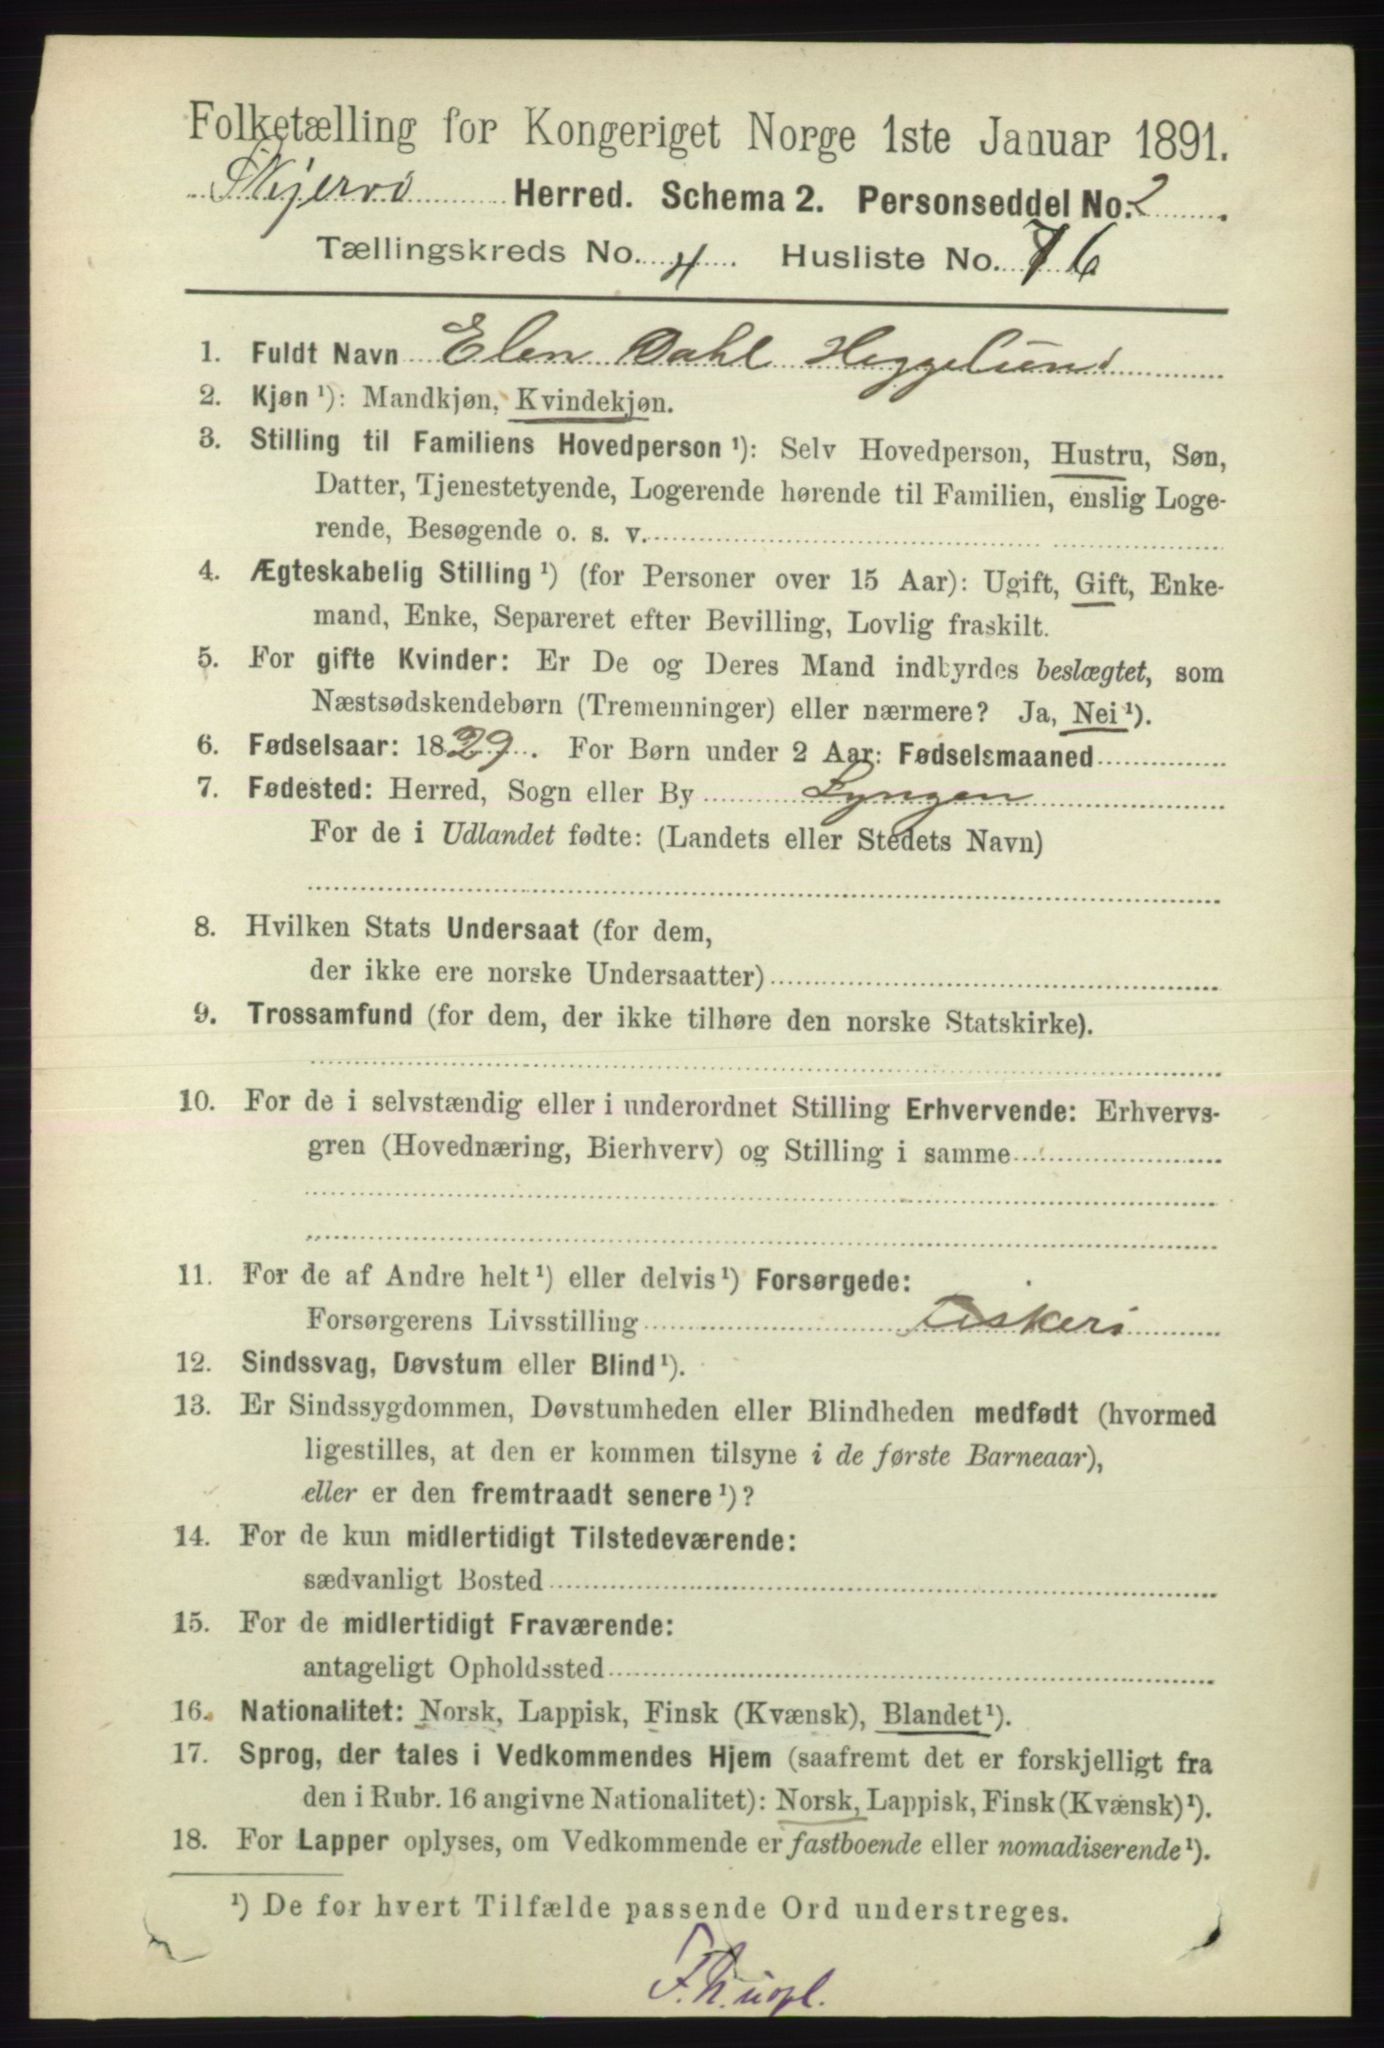 Folketælling for Kongeriget Norge 1ste Januar 1891.
Skjervö Herred. Schema 2. Personseddel No. 2.
Tællingskreds No. 4. Husliste No. 76
1. Fuldt Navn Elen Dahl Heggelund
2. Kjøn ¹): Mandkjøn, Kvindekjøn.
3. Stilling til Familiens Hovedperson ¹): Selv Hovedperson, Hustru, Søn,
Datter, Tjenestetyende, Logerende hørende til Familien, enslig Loge-
rende, Besøgende o. s. v.
4. Ægteskabelig Stilling ¹) (for Personer over 15 Aar): Ugift, Gift, Enke-
mand, Enke, Separeret efter Bevilling, Lovlig fraskilt.
5. For gifte Kvinder: Er De og Deres Mand indbyrdes beslægtet, som
Næstsødskendebørn (Tremenninger) eller nærmere? Ja, Nei ¹).
6. Fødselsaar: 1829. For Børn under 2 Aar: Fødselsmaaned
7. Fødested: Herred, Sogn eller By Lyngen
For de i Udlandet fødte: (Landets eller Stedets Navn)
8. Hvilken Stats Undersaat (for dem,
der ikke ere norske Undersaatter)
9. Trossamfund (for dem, der ikke tilhøre den norske Statskirke).
10. For de i selvstændig eller i underordnet Stilling Erhvervende: Erhvervs-
gren (Hovednæring, Bierhverv) og Stilling i samme
11. For de af Andre helt ¹) eller delvis ¹) Forsørgede:
Forsørgerens Livsstilling Fiskeri
12. Sindssvag, Døvstum eller Blind ¹).
13. Er Sindssygdommen, Døvstumheden eller Blindheden medfødt (hvormed
ligestilles, at den er kommen tilsyne i de første Barneaar),
eller er den fremtraadt senere ¹)?
14. For de kun midlertidigt Tilstedeværende:
sædvanligt Bosted
15. For de midlertidigt Fraværende:
antageligt Opholdssted
16. Nationalitet: Norsk, Lappisk, Finsk (Kvænsk), Blandet ¹).
17. Sprog, der tales i Vedkommendes Hjem (saafremt det er forskjelligt fra
den i Rubr. 16 angivne Nationalitet): Norsk, Lappisk, Finsk (Kvænsk) ¹).
18. For Lapper oplyses, om Vedkommende er fastboende eller nomadiserende ¹).
¹) De for hvert Tilfælde passende Ord understreges.